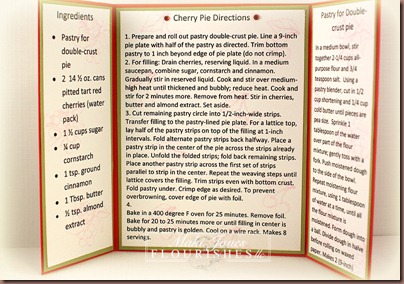 Ingredients
Pastry for
double-
crust pie
2 14 ½ oz. cans
pitted tart red
cherries (water
pack)
1 ½ cups sugar
¼ cup
cornstarch
1 tsp. ground
cinnamon
1 Tbsp. butter
½ tsp. almond
extract
Cherry Pie Directions
1. Prepare and roll out pastry double-crust pie. Line a 9-inch
pie plate with half of the pastry as directed. Trim bottom
pastry to 1 inch beyond edge of pie plate (do not crimp).
2. For filling: Drain cherries, reserving liquid. In a medium
saucepan, combine sugar, cornstarch and cinnamon.
Gradually stir in reserved liquid. Cook and stir over medium-
high heat until thickened and bubbly; reduce heat. Cook and
stir for 2 minutes more. Remove from heat. Stir in cherries,
butter and almond extract. Set aside.
3. Cut remaining pastry circle into 1/2-inch-wide strips.
Transfer filling to the pastry-lined pie plate. For a lattice top,
lay half of the pastry strips on top of the filling at 1-inch
intervals. Fold alternate pastry strips back halfway. Place a
pastry strip in the center of the pie across the strips already
in place. Unfold the folded strips; fold back remaining strips.
Place another pastry strip across the first set of strips
parallel to strip in center. Repeat the weaving steps until
lattice covers the filling. Trim strips even with bottom crust.
Fold pastry under. Crimp edge as desired. To prevent
overbrowning, cover edge of pie with foil.
4.
Bake in a 400 degree F oven for 25 minutes. Remove foil.
Bake for 20 to 25 minutes more or until filling in center is
bubbly and pastry is golden. Cool on a wire rack. Makes 8
servings.
FLOURISHES
Pastry for Double-
crust pie
In a medium bowl, stir
together 2-1/4 cups all-
purpose flour and 3/4
teaspoon salt. Using a
pastry blender, cut in 1/2
cup shortening and 1/4 cup
cold butter until pieces are
pea size. Sprinkle 1
tablespoon of the water
over part of the flour
mixture; gently toss with a
fork. Push moistened dough
to the side of the bowl.
Repeat moistening flour
mixture, using 1 tablespoon
of water at a time, until all
the flour mixture is
moistened. Form dough into
a ball. Divide dough in halve
before rolling on waxed
paper. Makes 2 (9-inch)